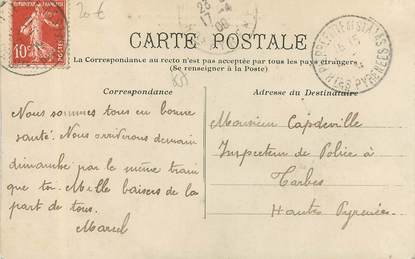 20€
10
23
17
08
CARTE POSTALE
La Correspondance au recto n'est pas acceptée par tous les pays étrangers
(Se renseigner à la Poste)
Correspondance
Adresse du Destinataire
Nous sommes tous en bonne
santé. Nous arriverons demain
dimanche par le même train
que toi. Mille baisers de la
part de tous.
Marcel
Monsieur Capdeville
Inspecteur de Police à
Tarbes
Hautes Pyrenées